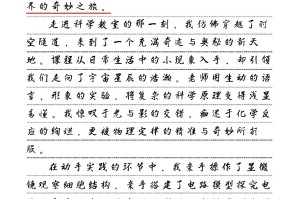 界的奇妙之旅。
走进科学教室的那一刻，我仿佛穿越了时
空隧道，来到了一个充满奇迹与奥秘的新天
地。课程从日常生活中的小现象入手，却引领
我们走向了宇宙星辰的浩瀚。老师用生动的语
言，形象的实验，将复杂的科学原理变得浅显
易懂。我惊叹于光与影的交错，痴迷于化学反
应的绚烂，更被物理定律的精准与奇妙所折
服。
在动手实践的环节中，我亲手操作了显微
镜观察细胞结构，亲手搭建了电路模型探究电